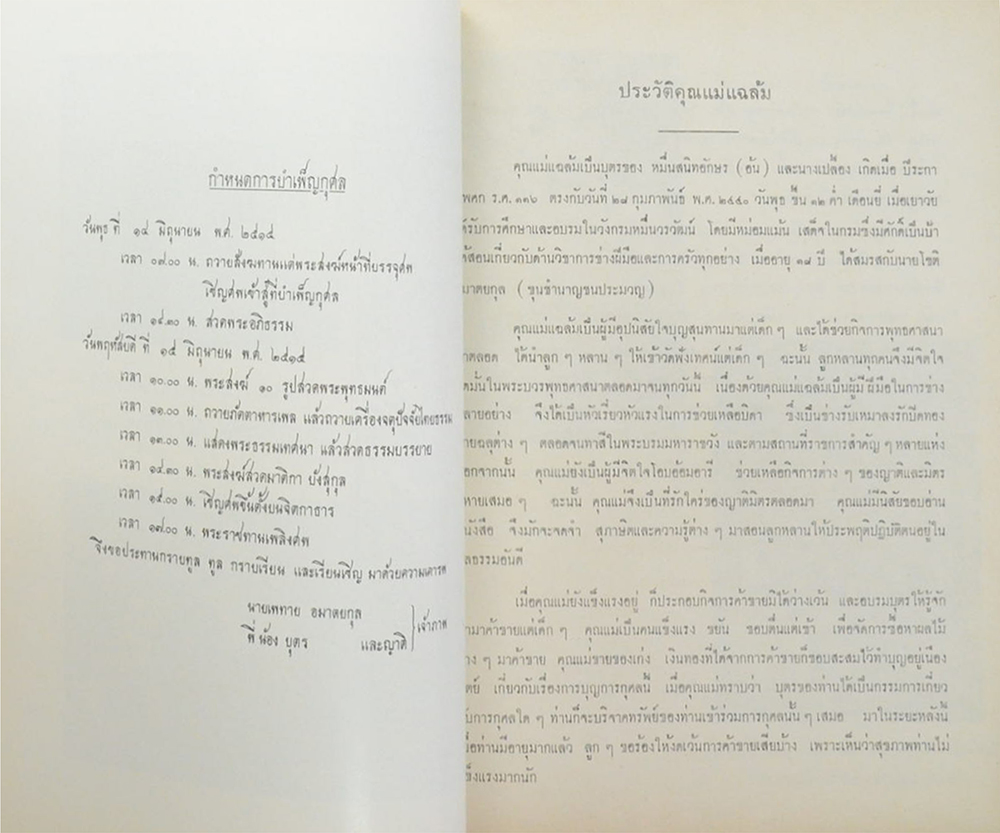 กำหนดการบำเพ็ญกุศล
วันพุธ ที่ ๑๔ มิถุนายน พ.ศ. ๒๕๑๕
เวลา ๐๙.๐๐ น. ถวายสังฆทานแด่พระสงฆ์หน้าที่บรรจุศพ
เชิญศพเข้าสู่ที่บำเพ็ญกุศล
เวลา ๑๙.๓๐ น. สวดพระอภิธรรม
วันพฤหัสบดี ที่ ๑๕ มิถุนายน พ.ศ. ๒๕๑๕
เวลา ๑๐.๐๐ น. พระสงฆ์ ๑๐ รูปสวดพระพุทธมนต์
เวลา ๑๑.๐๐ น. ถวายภัตตาหารเพล แล้วถวายเครื่องจตุปัจจัยไทยธรรม
เวลา ๑๓.๐๐ น. แสดงพระธรรมเทศนา แล้วสวดธรรมบรรยาย
เวลา ๑๔.๓๐ น. พระสงฆ์สวดมาติกา บังสุกุล
เวลา ๑๕.๐๐ น. เชิญศพขึ้นตั้งบนจิตกาธาร
เวลา ๑๗.๐๐ น. พระราชทานเพลิงศพ
จึงขอประทานกราบทูล ทูล กราบเรียน และเรียนเชิญ มาด้วยความเคารพ
นายเพทาย อมาตยกุล
พี่ น้อง บุตร และญาติ } เจ้าภาพ
ประวัติคุณแม่แฉล้ม
คุณแม่แฉล้มเป็นบุตรของ หมื่นสนิทอักษร (อ้น) และนางเปลื้อง เกิดเมื่อ ปีระกา
พศก ร.ศ. ๑๑๖ ตรงกับวันที่ ๒๘ กุมภาพันธ์ พ.ศ. ๒๔๔๐ วันพุธ ขึ้น ๑๒ ค่ำ เดือนยี่ เมื่อเยาวัย
ด้รับการศึกษาและอบรมในวังกรมหมื่นวรวัฒน์ โดยมีหม่อมแม้น เสด็จในกรมซึ่งมีศักดิ์เป็นป้า
ด้สอนเกี่ยวกับด้านวิชาการช่างฝีมือและการครัวทุกอย่าง เมื่ออายุ ๑๘ ปี ได้สมรสกับนายโชติ
มาตยกุล (ขุนชำนาญชนประมวญ)
คุณแม่แฉล้มเป็นผู้มีอุปนิสัยใจบุญสุนทานมาแต่เด็ก ๆ และได้ช่วยกิจการพุทธศาสนา
าตลอด ได้นำลูก ๆ หลาน ๆ ให้เข้าวัดฟังเทศน์แต่เด็ก ๆ ฉะนั้น ลูกหลานทุกคนจึงมีจิตใจ
ดมั่นในพระบวรพุทธศาสนาตลอดมาจนทุกวันนี้ เนื่องด้วยคุณแม่แฉล้มเป็นผู้มีฝีมือในการช่าง
ลายอย่าง จึงได้เป็นหัวเรี่ยวหัวแรงในการช่วยเหลือบิดา ซึ่งเป็นช่างรับเหมาลงรักปิดทอง
ายฉลุต่าง ๆ ตลอดจนทาสีในพระบรมมหาราชวัง และตามสถานที่ราชการสำคัญ ๆ หลายแห่ง
อกจากนั้น คุณแม่ยังเป็นผู้มีจิตใจโอบอ้อมอารี ช่วยเหลือกิจการต่าง ๆ ของญาติและมิตร
หายเสมอ ๆ ฉะนั้น คุณแม่จึงเป็นที่รักใคร่ของญาติมิตรตลอดมา คุณแม่มีนิสัยชอบอ่าน
นังสือ จึงมักจะจดจำ สุภาษิตและความรู้ต่าง ๆ มาสอนลูกหลานให้ประพฤติปฏิบัติตนอยู่ใน
ีลธรรมอันดี
เมื่อคุณแม่ยังแข็งแรงอยู่ ก็ประกอบกิจการค้าขายมิได้ว่างเว้น และอบรมบุตรให้รู้จัก
ำมาค้าขายแต่เด็ก ๆ คุณแม่เป็นคนแข็งแรง ขยัน ชอบตื่นแต่เช้า เพื่อจัดการซื้อหาผลไม้
่าง ๆ มาค้าขาย คุณแม่ขายของเก่ง เงินทองที่ได้จากการค้าขายก็ชอบสะสมไว้ทำบุญอยู่เนือง
ิตย์ เกี่ยวกับเรื่องการบุญการกุศลนี้ เมื่อคุณแม่ทราบว่า บุตรของท่านได้เป็นกรรมการเกี่ยว
ับการกุศลใด ๆ ท่านก็จะบริจาคทรัพย์ของท่านเข้าร่วมการกุศลนั้น ๆ เสมอ มาในระยะหลังนี้
มื่อท่านมีอายุมากแล้ว ลูก ๆ ขอร้องให้งดเว้นการค้าขายเสียบ้าง เพราะเห็นว่าสุขภาพท่านไม่
ข็งแรงมากนัก